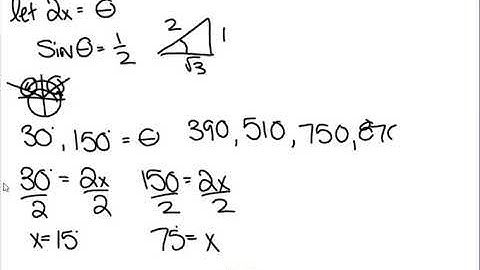 let 2x = θ
sin θ = 1/2
2
1
√3
30°, 150° = θ 390, 510, 750, 870
30°/2 = 2x/2 150/2 = 2x/2
x = 15° 75° = x